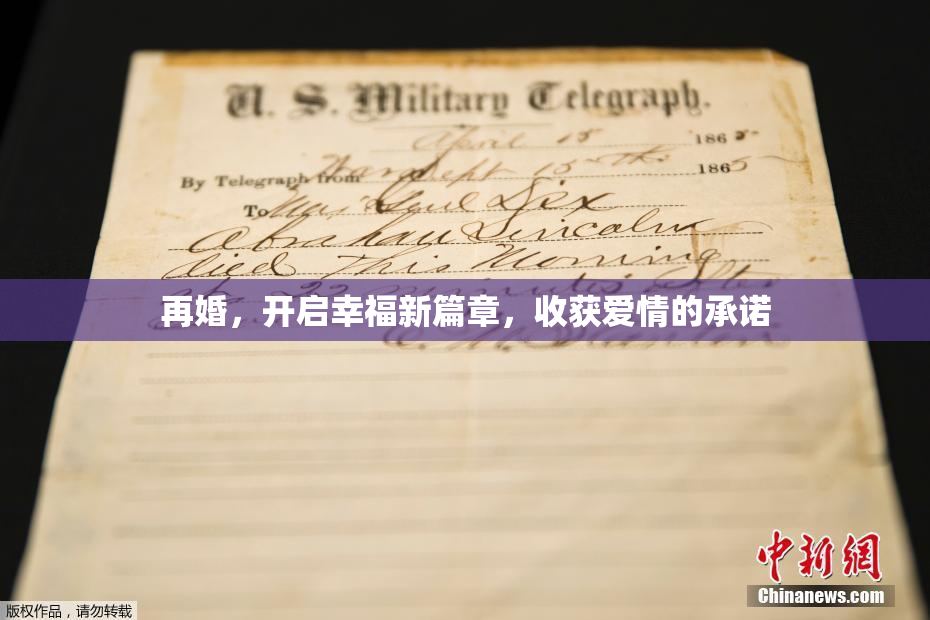 U. S. Military Telegraph.
April 15 1865
By Telegraph from War Dept 15th 1865
To Maj Genl Dix
Abraham Lincoln
died This Morning
at 22 minutes after
再婚，开启幸福新篇章，收获爱情的承诺
E. M. Stanton
中新网
Chinanews.com
版权作品，请勿转载